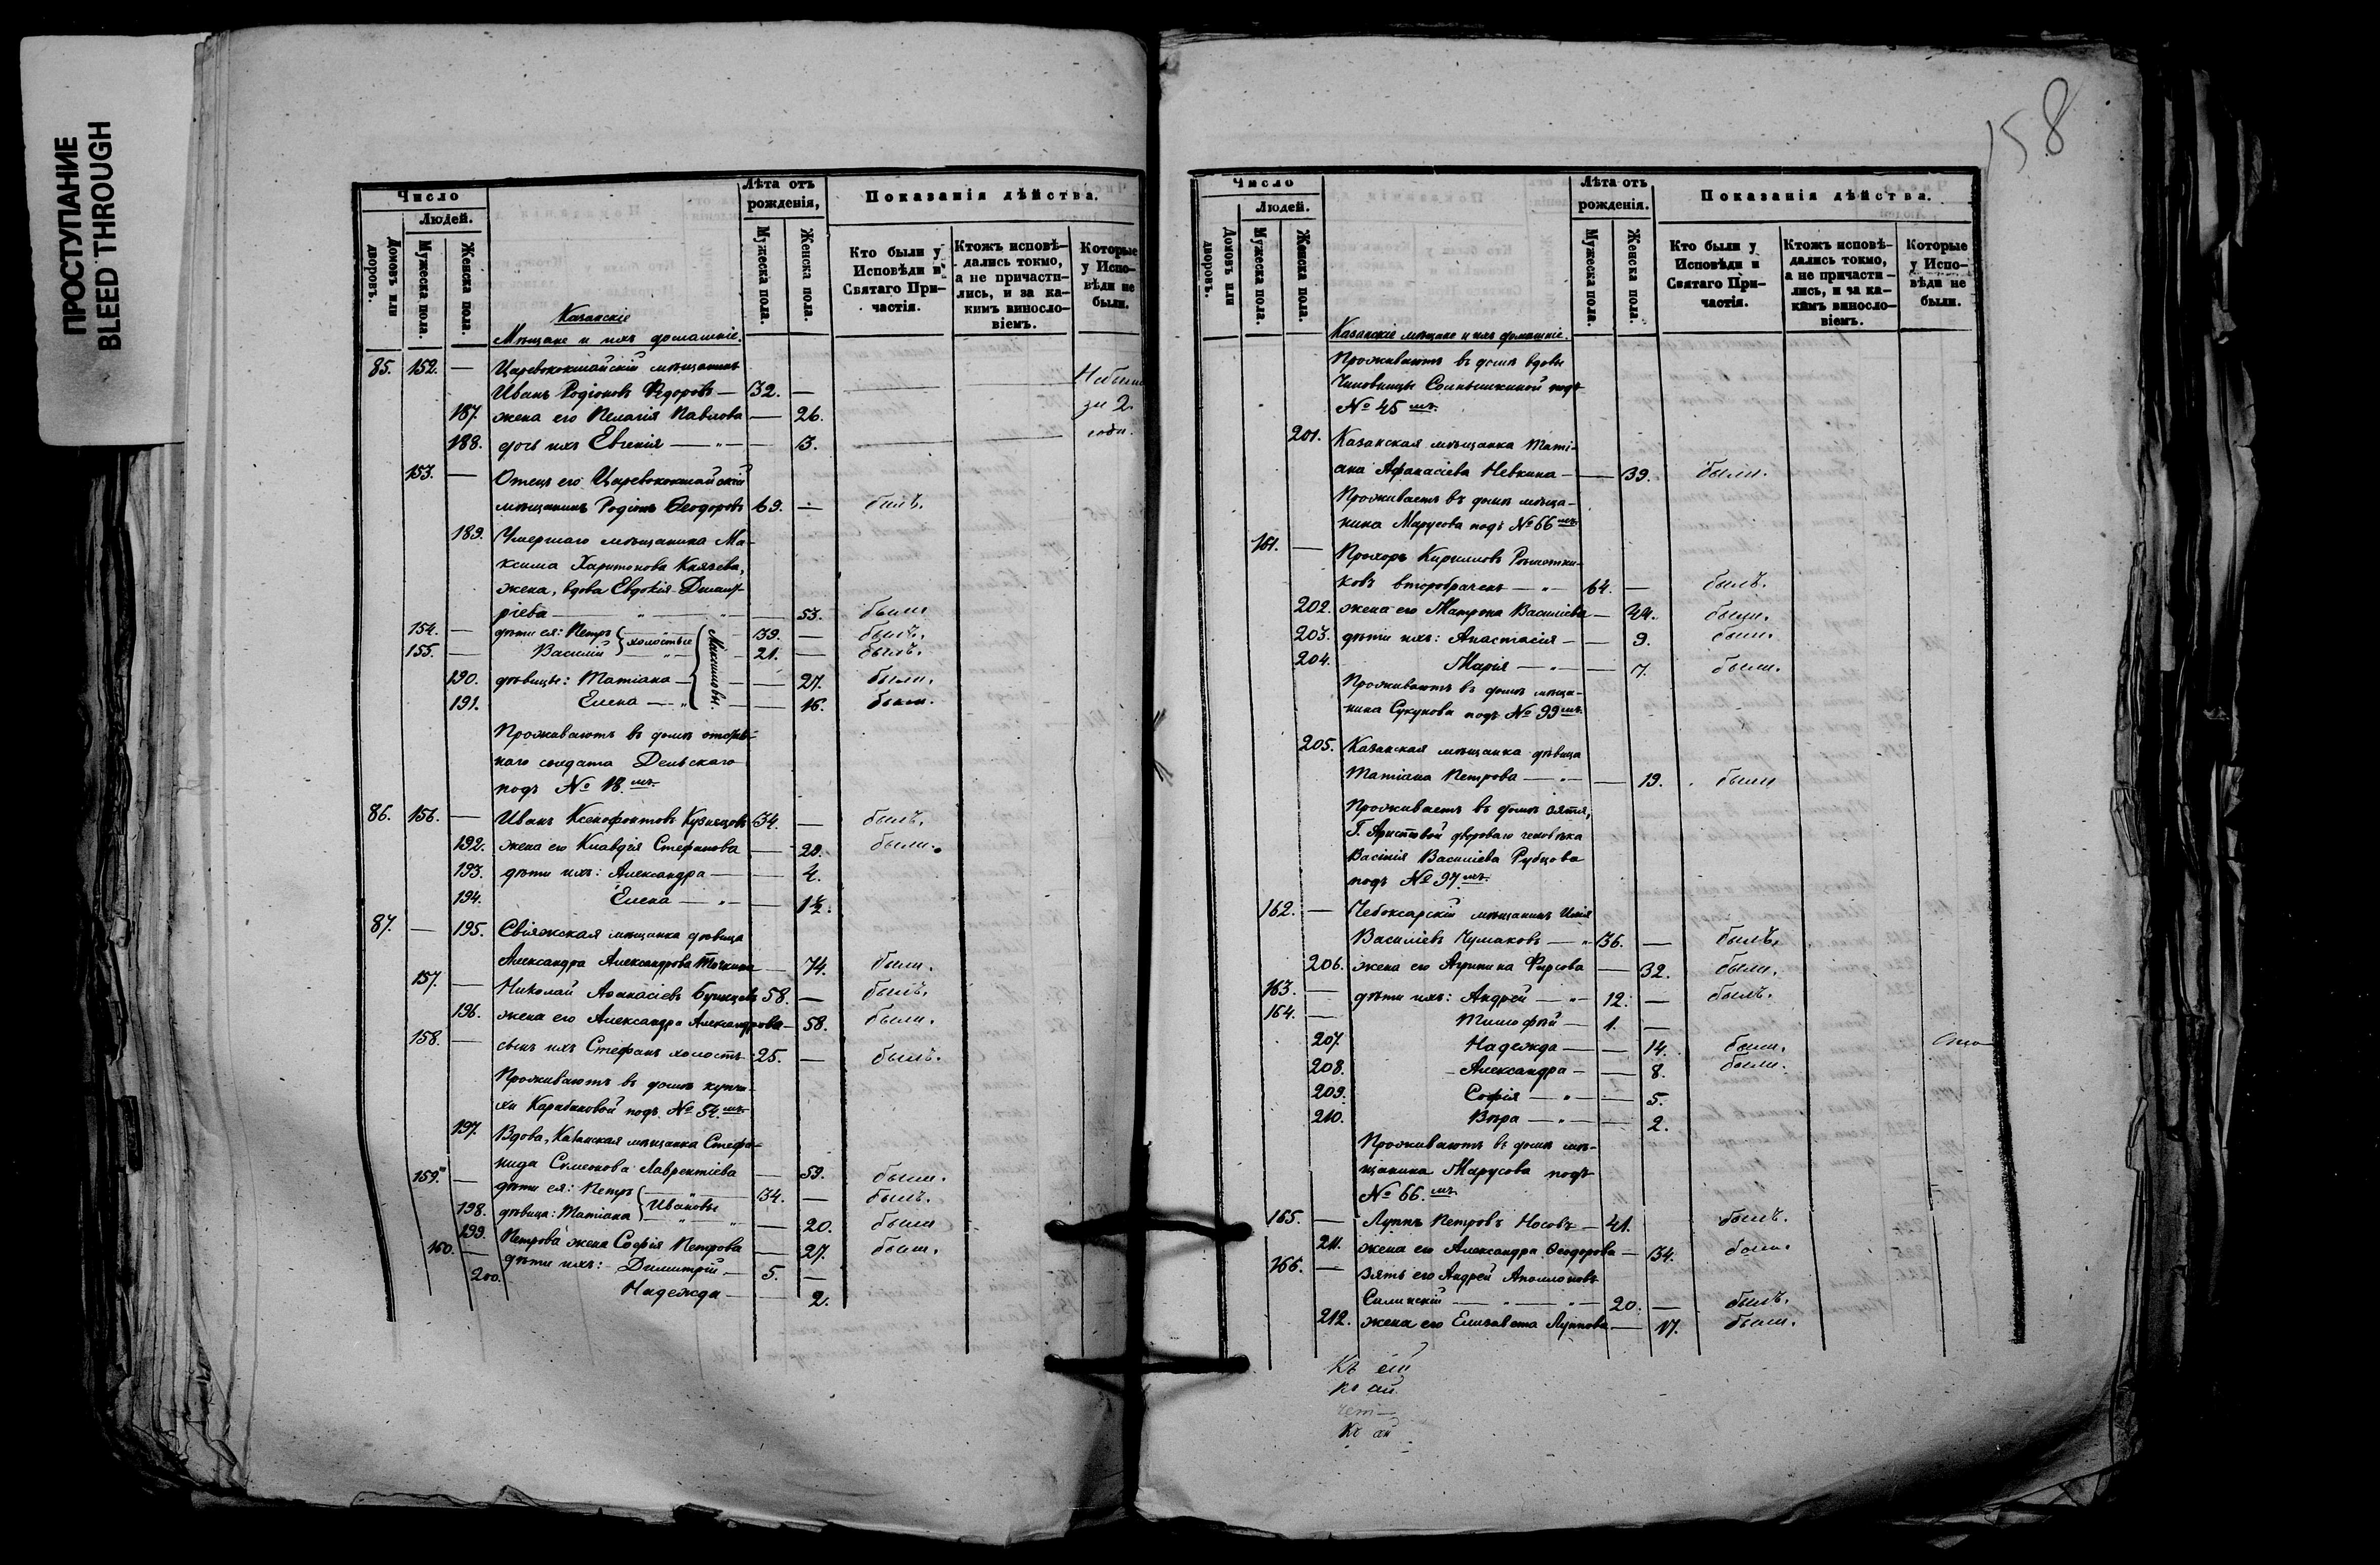 ПРОСТУПАНИЕ
BLEED THROUGH
Число
Людей.
Домовъ или дворовъ.
Мужеска пола.
Женска пола.
Лѣта отъ рожденія,
Мужеска пола.
Женска пола.
Показанія дѣйства.
Кто были у Исповѣди и Святаго Причастія.
Ктожъ исповѣдались токмо, а не причастились, и за какимъ винословіемъ.
Которые у Исповѣди не были.
Казанскіе
Мѣщане и ихъ домашніе.
85. 152. — Царевококшайскій мѣщанинъ
Иванъ Родіоновъ Ѳедоровъ — 32. — Небыли
187. жена его Пелагія Павлова — 26. за 2
188. дочь ихъ Евгенія — 3. года.
153. — Отецъ его Царевококшайскій
мѣщанинъ Родіонъ Ѳеодоровъ 69. — былъ.
189. Умершаго мѣщанина Ма-
ксима Харитонова Князева,
жена, вдова Евдокія Димит-
ріева — 53. была
154. — дѣти ея: Петръ } холостые 39. — былъ.
155. — Василій 21. — былъ.
190. дѣвицы: Татіана — 27. была.
191. Елена — 16. была.
Максимовы.
Проживаютъ въ домѣ
наго солдата Дельскаго
подъ № 18.мъ
86. 156. — Иванъ Ксенофонтовъ Кузнецовъ 34. — былъ.
192. жена его Клавдія Стефанова — была.
193. дѣти ихъ: Александра — 4.
194. Елена — 1½.
87. — 195. Свіяжская мѣщанка дѣвица
Александра Александрова — 74. была.
157. — Николай Аѳанасіевъ 58. — былъ.
196. жена его Александра Александрова — 58. была.
158. — сынъ ихъ Стефанъ холостъ 25. — былъ.
Проживаютъ въ домѣ купчи-
хи Карабановой подъ № 54.мъ
197. Вдова, Казанская мѣщанка Стефа-
нида Симеонова Лаврентіева — 59. была.
159. — дѣти ея: Петръ } Ивановы 34. — былъ.
198. дѣвица: Татіана — 20. была
199. Петрова жена Софія Петрова — 27. была.
160. — дѣти ихъ: Димитрій — 5. —
200. Надежда — 2.
158
Число
Людей.
Домовъ или дворовъ.
Мужеска пола.
Женска пола.
Лѣта отъ рожденія.
Мужеска пола.
Женска пола.
Показанія дѣйства.
Кто были у Исповѣди и Святаго Причастія.
Ктожъ исповѣдались токмо, а не причастились, и за какимъ винословіемъ.
Которые у Исповѣди не были.
Казанскіе мѣщане и ихъ домашніе.
Проживаютъ въ домѣ вдовы
Чиновницы подъ
№ 45 мъ
201. Казанская мѣщанка Таті-
ана Афанасіева Невкина — 39. была.
Проживаетъ въ домѣ мѣща-
нина Марусова подъ № 66 мъ
161. — Прохоръ Кирилловъ
ковъ второбраченъ — 64. — былъ.
202. жена его Матрона Василіева — 44. была.
203. дѣти ихъ: Анастасія — 9. была.
204. Марія — 7. была.
Проживаютъ въ домѣ мѣща-
нина Сукунова подъ № 99 мъ
205. Казанская мѣщанка дѣвица
Татіана Петрова — 19. была
Проживаетъ въ домѣ зятя,
Г. двороваго человѣка
Василія Василіева Рубцова
подъ № 97.мъ
162. — Чебоксарскій мѣщанинъ Илія
Василіевъ Чумаковъ — 36. — былъ.
206. жена его Агрипина Фирсова — 32. была.
163. — дѣти ихъ: Андрей — 12. — былъ.
164. — Тимофѣй — 1. —
207. Надежда — 14. была.
208. Александра — 8. была.
209. Софія — 5.
210. Вѣра — 2.
Проживаютъ въ домѣ мѣ-
щанина Марусова подъ
№ 66.мъ
165. — Луппъ Петровъ Носовъ — 41. былъ.
211. жена его Александра Ѳеодорова — 34. была.
166. — зять его Андрей Аполлоновъ
Силинскій — 20. — былъ.
212. жена его Елизавета Луппова — 17. была.